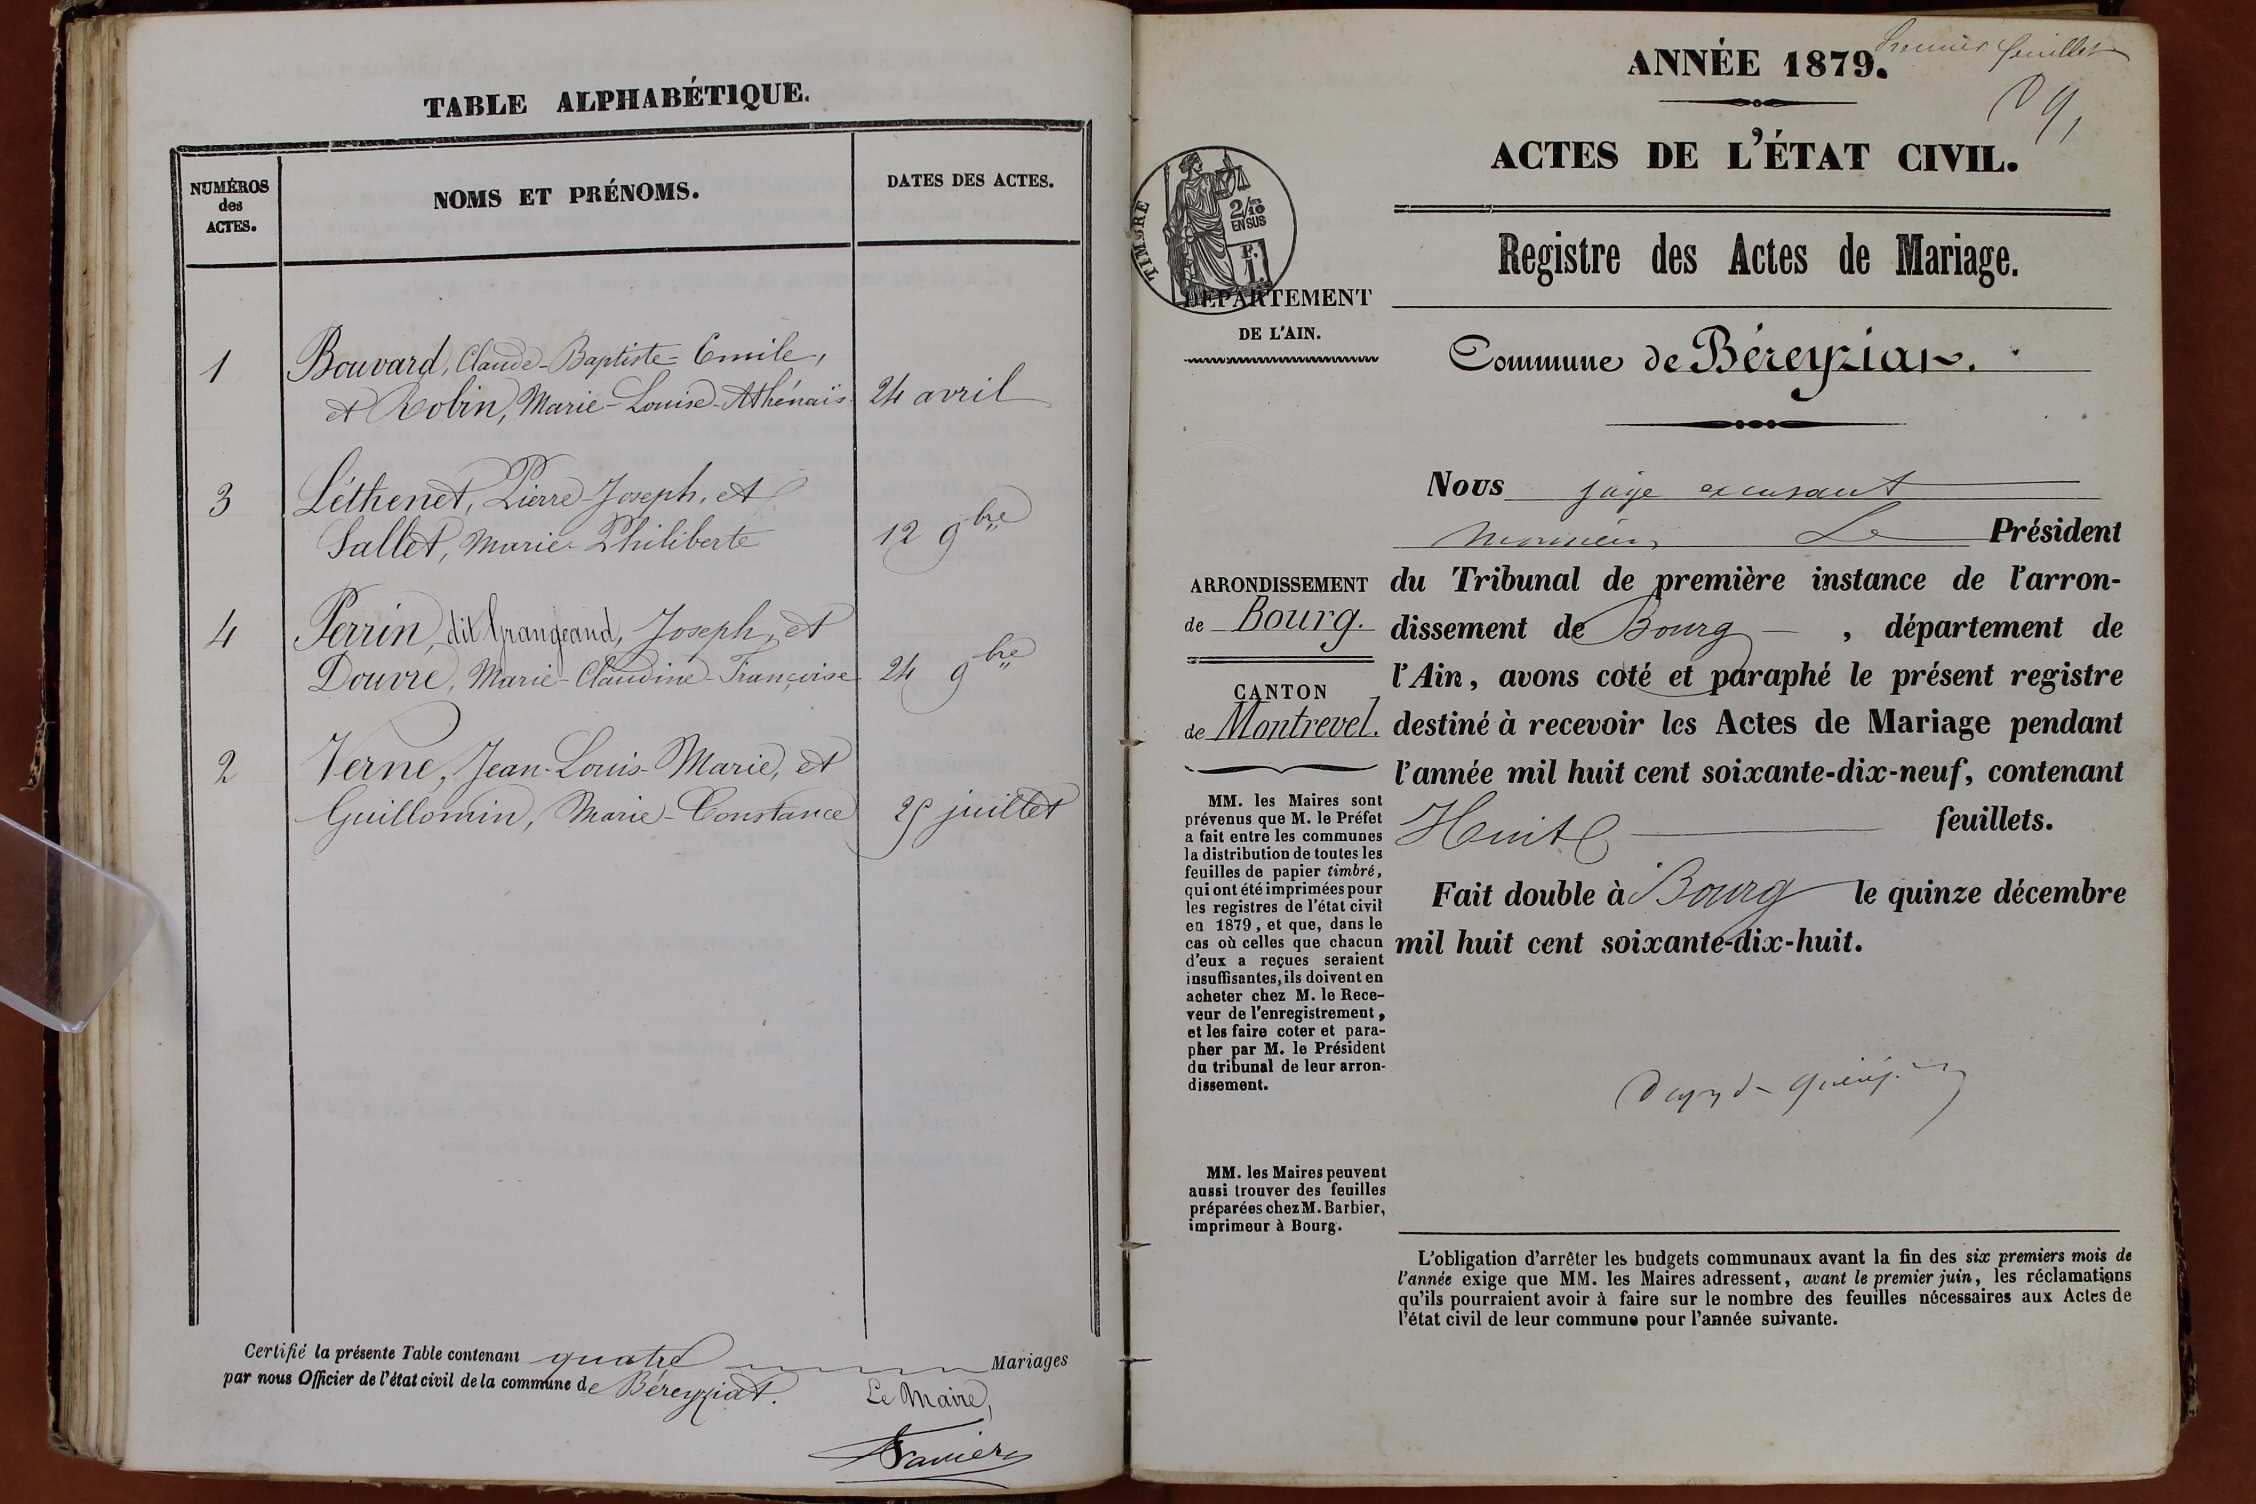 TABLE ALPHABÉTIQUE.
NUMÉROS
des
ACTES.
NOMS ET PRÉNOMS.
DATES DES ACTES.
1
Bouvard, Claude-Baptiste-Emile,
et Robin, Marie-Louise-Athénaïs
24 avril
3
Léthenet, Pierre-Joseph, et
Sallet, Marie-Philiberte
12 9bre
4
Perrin, dit Grangeand, Joseph, et
Douvre, Marie-Claudine-Françoise
24 9bre
2
Verne, Jean-Louis-Marie, et
Guillomin, Marie-Constance
25 juillet
Certifié la présente Table contenant quatre Mariages
par nous Officier de l'état civil de la commune de Béreyziat.
Le Maire,
Premier feuillet
ANNÉE 1879.
ACTES DE L'ÉTAT CIVIL.
TIMBRE
2/10 EN SUS
F. 1.
Registre des Actes de Mariage.
DÉPARTEMENT
DE L'AIN.
Commune de Béreyziat.
ARRONDISSEMENT
de Bourg.
CANTON
de Montrevel.
MM. les Maires sont
prévenus que M. le Préfet
a fait entre les communes
la distribution de toutes les
feuilles de papier timbré,
qui ont été imprimées pour
les registres de l'état civil
en 1879, et que, dans le
cas où celles que chacun
d'eux a reçues seraient
insuffisantes, ils doivent en
acheter chez M. le Rece-
veur de l'enregistrement,
et les faire coter et para-
pher par M. le Président
du tribunal de leur arron-
dissement.
MM. les Maires peuvent
aussi trouver des feuilles
préparées chez M. Barbier,
imprimeur à Bourg.
Nous juge excusant
Monsieur Le Président
du Tribunal de première instance de l'arron-
dissement de Bourg, département de
l'Ain, avons coté et paraphé le présent registre
destiné à recevoir les Actes de Mariage pendant
l'année mil huit cent soixante-dix-neuf, contenant
Huit feuillets.
Fait double à Bourg le quinze décembre
mil huit cent soixante-dix-huit.
L'obligation d'arrêter les budgets communaux avant la fin des six premiers mois de
l'année exige que MM. les Maires adressent, avant le premier juin, les réclamations
qu'ils pourraient avoir à faire sur le nombre des feuilles nécessaires aux Actes de
l'état civil de leur commune pour l'année suivante.